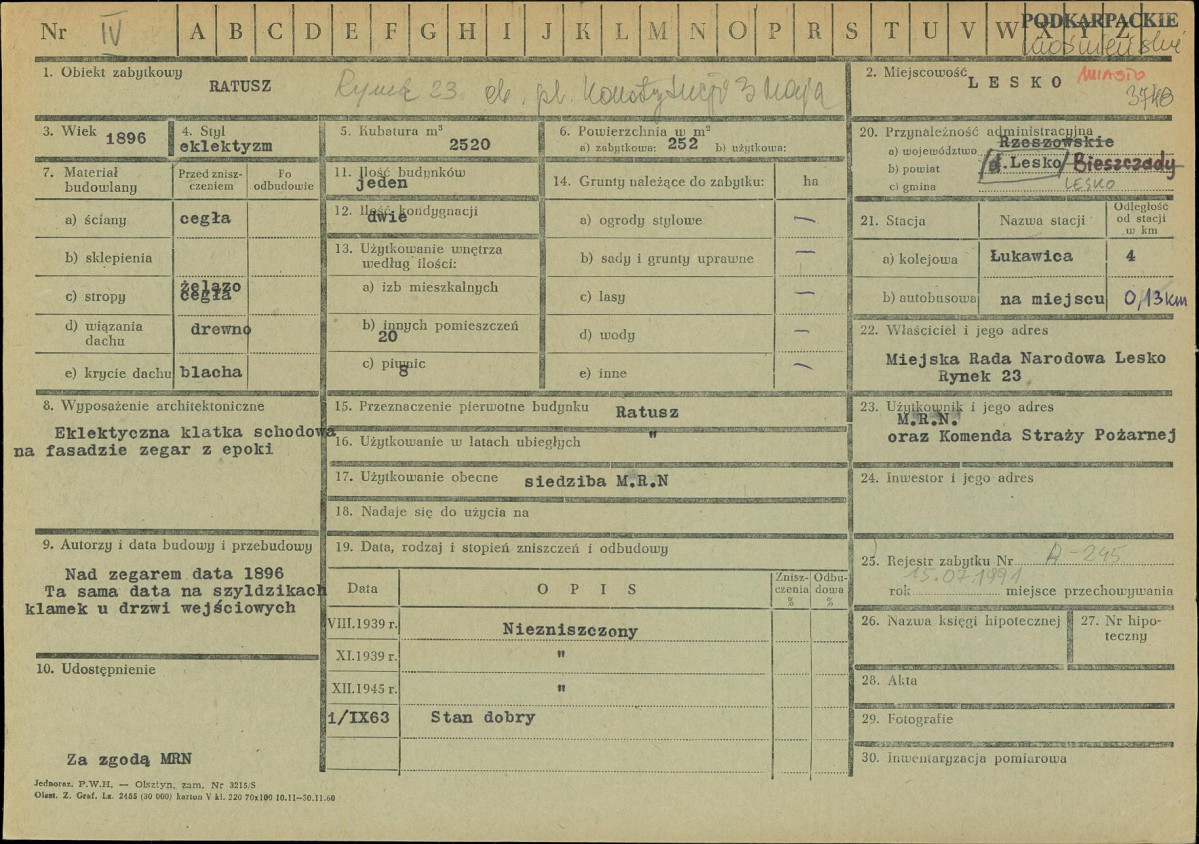 Nr IV A B C D E F G H I J K L M N O P R S T U V W X Y Z PODKARPACKIE
krośnieńskie
1. Obiekt zabytkowy
RATUSZ Rynek 23 ob. pl. Konstytucji 3 Maja
2. Miejscowość LESKO MIASTO
3748
3. Wiek 1896
4. Styl
eklektyzm
5. Kubatura m³
2520
6. Powierzchnia w m²
a) zabytkowa: 252 b) użytkowa:
7. Materiał budowlany
Przed zniszczeniem
Po odbudowie
a) ściany cegła
b) sklepienia
c) stropy żelazo cegła
d) wiązania dachu drewno
e) krycie dachu blacha
8. Wyposażenie architektoniczne
Eklektyczna klatka schodowa
na fasadzie zegar z epoki
9. Autorzy i data budowy i przebudowy
Nad zegarem data 1896
Ta sama data na szyldzikach
klamek u drzwi wejściowych
10. Udostępnienie
Za zgodą MRN
11. Ilość budynków
jeden
12. Ilość kondygnacji
dwie
13. Użytkowanie wnętrza
według ilości:
a) izb mieszkalnych
b) innych pomieszczeń
20
c) piwnic
8
14. Grunty należące do zabytku: ha
a) ogrody stylowe —
b) sady i grunty uprawne —
c) lasy —
d) wody —
e) inne —
15. Przeznaczenie pierwotne budynku Ratusz
16. Użytkowanie w latach ubiegłych "
17. Użytkowanie obecne siedziba M.R.N
18. Nadaje się do użycia na
19. Data, rodzaj i stopień zniszczeń i odbudowy
Data OPIS Zniszczenia % Odbudowa %
VIII.1939 r. Niezniszczony
XI.1939 r. "
XII.1945 r. "
1/IX63 Stan dobry
20. Przynależność administracyjna
a) województwo Rzeszowskie
b) powiat /d.Lesko/ Bieszczady
c) gmina LESKO
21. Stacja Nazwa stacji Odległość od stacji w km
a) kolejowa Łukawica 4
b) autobusowa na miejscu 0,13km
22. Właściciel i jego adres
Miejska Rada Narodowa Lesko
Rynek 23
23. Użytkownik i jego adres
M.R.N.
oraz Komenda Straży Pożarnej
24. Inwestor i jego adres
25. Rejestr zabytku Nr A-245
15.07.1991
rok miejsce przechowywania
26. Nazwa księgi hipotecznej
27. Nr hipoteczny
28. Akta
29. Fotografie
30. Inwentaryzacja pomiarowa
Jednoraz. P.W.H. — Olsztyn, zam. Nr 3215/S
Olszt. Z. Graf. Lz. 2455 (30 000) karton V kl. 220 70x100 10.11—30.11.60